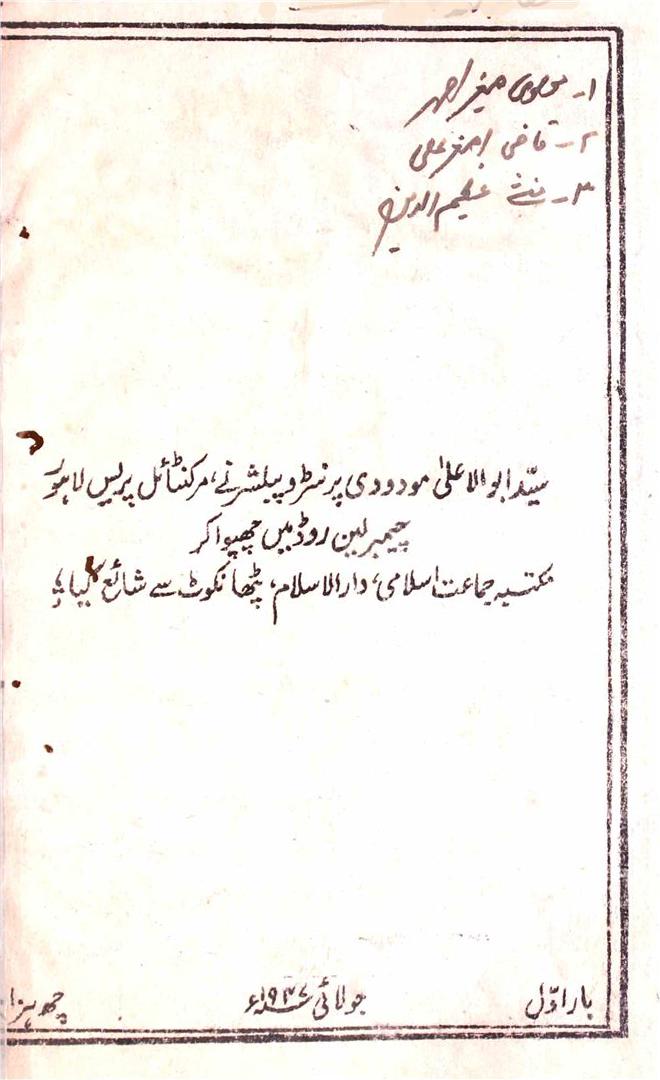 ۱۔ مولوی صغیر احمد
۲۔ قاضی اصغر علی
۳۔ منشی عظیم الدین
سیّد ابوالاعلیٰ مودودی پرنٹر و پبلشر نے، مرکنٹائل پریس لاہور
چیمبرلین روڈ میں چھپوا کر
مکتبہ جماعت اسلامی، دارالاسلام، پٹھانکوٹ سے شائع کیا؛
بار اوّل
جولائی ۱۹۴۷ء
چھ ہزار